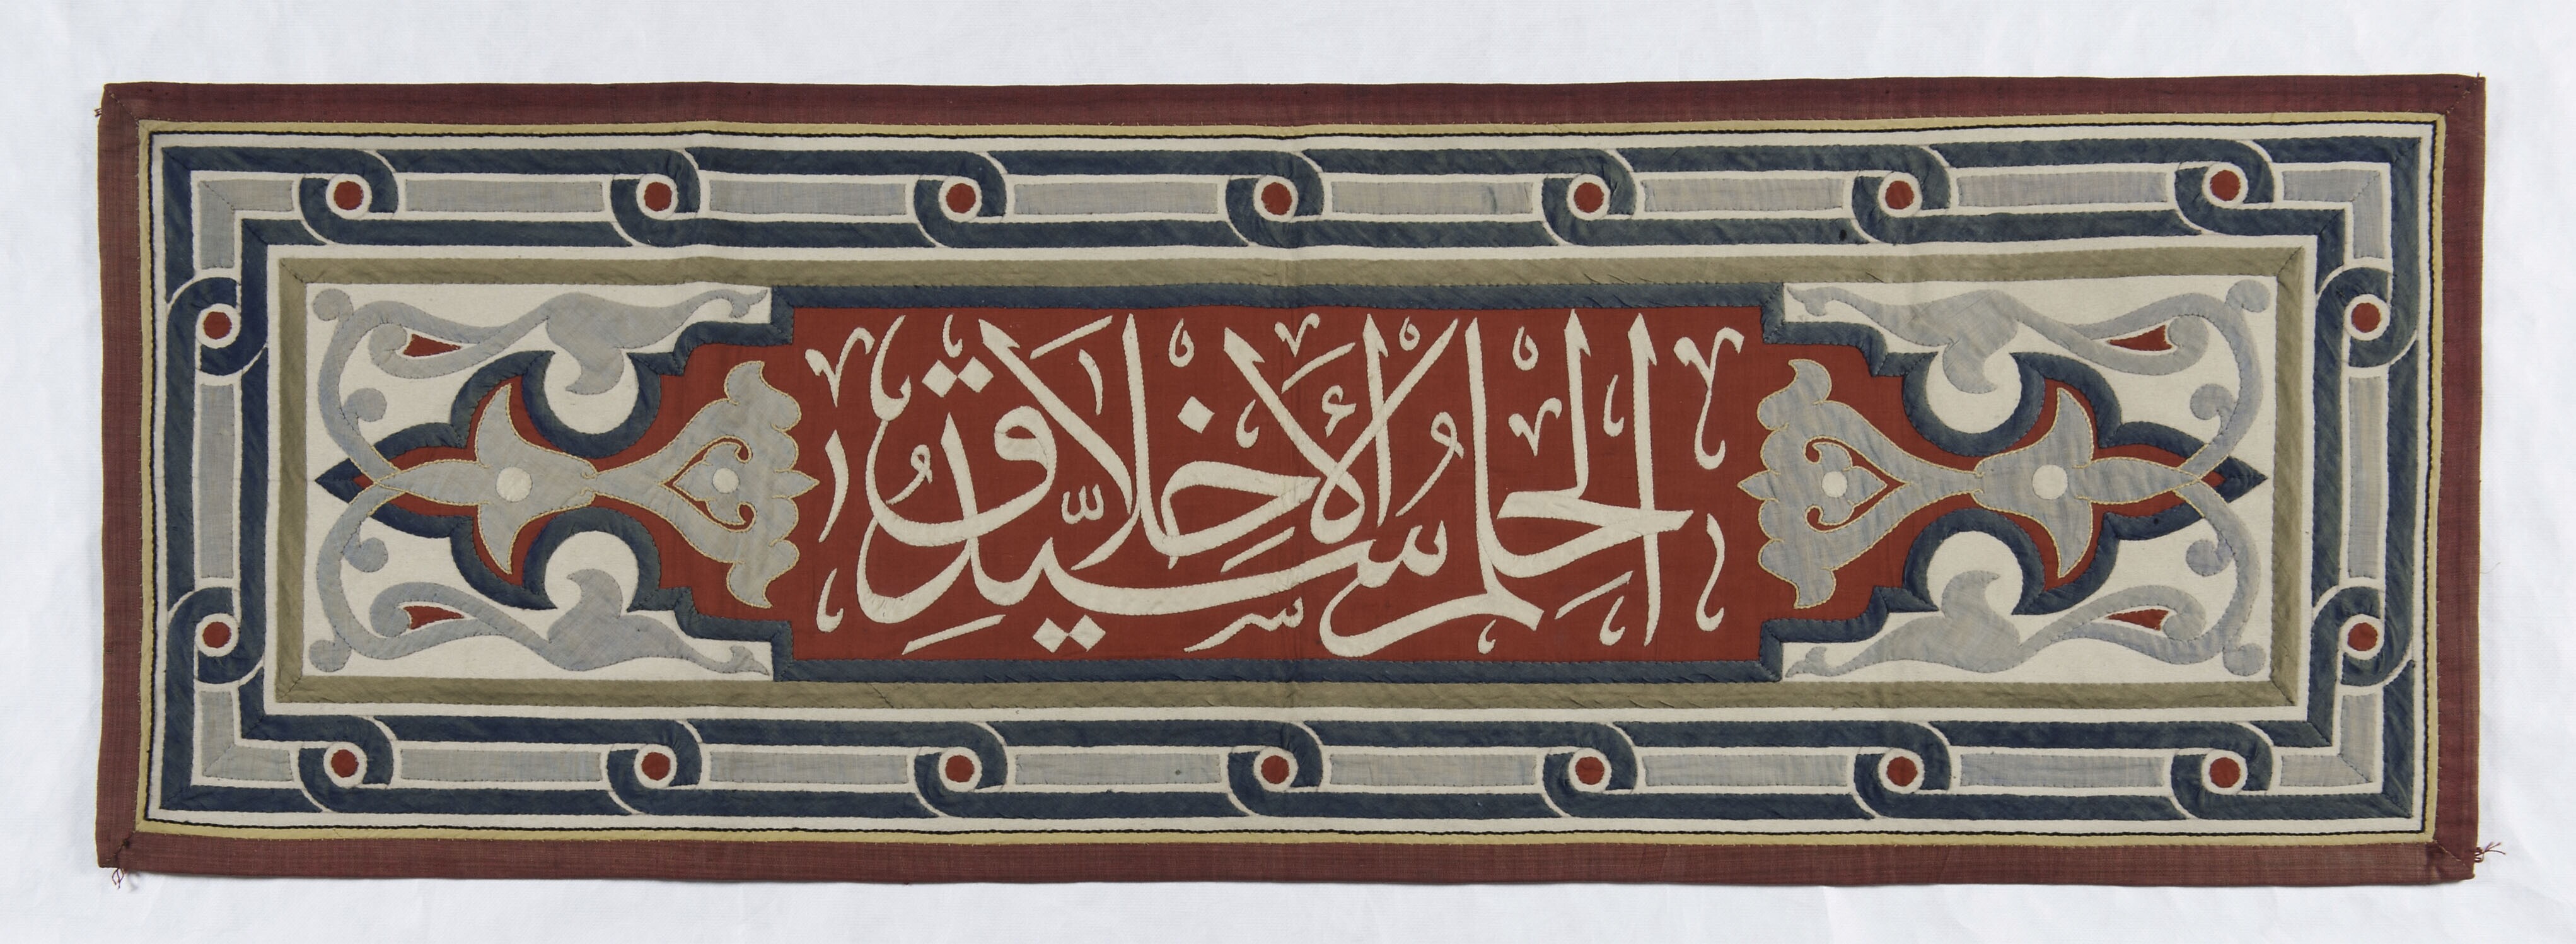 الحِلم سَيِّدُ الأَخلاق